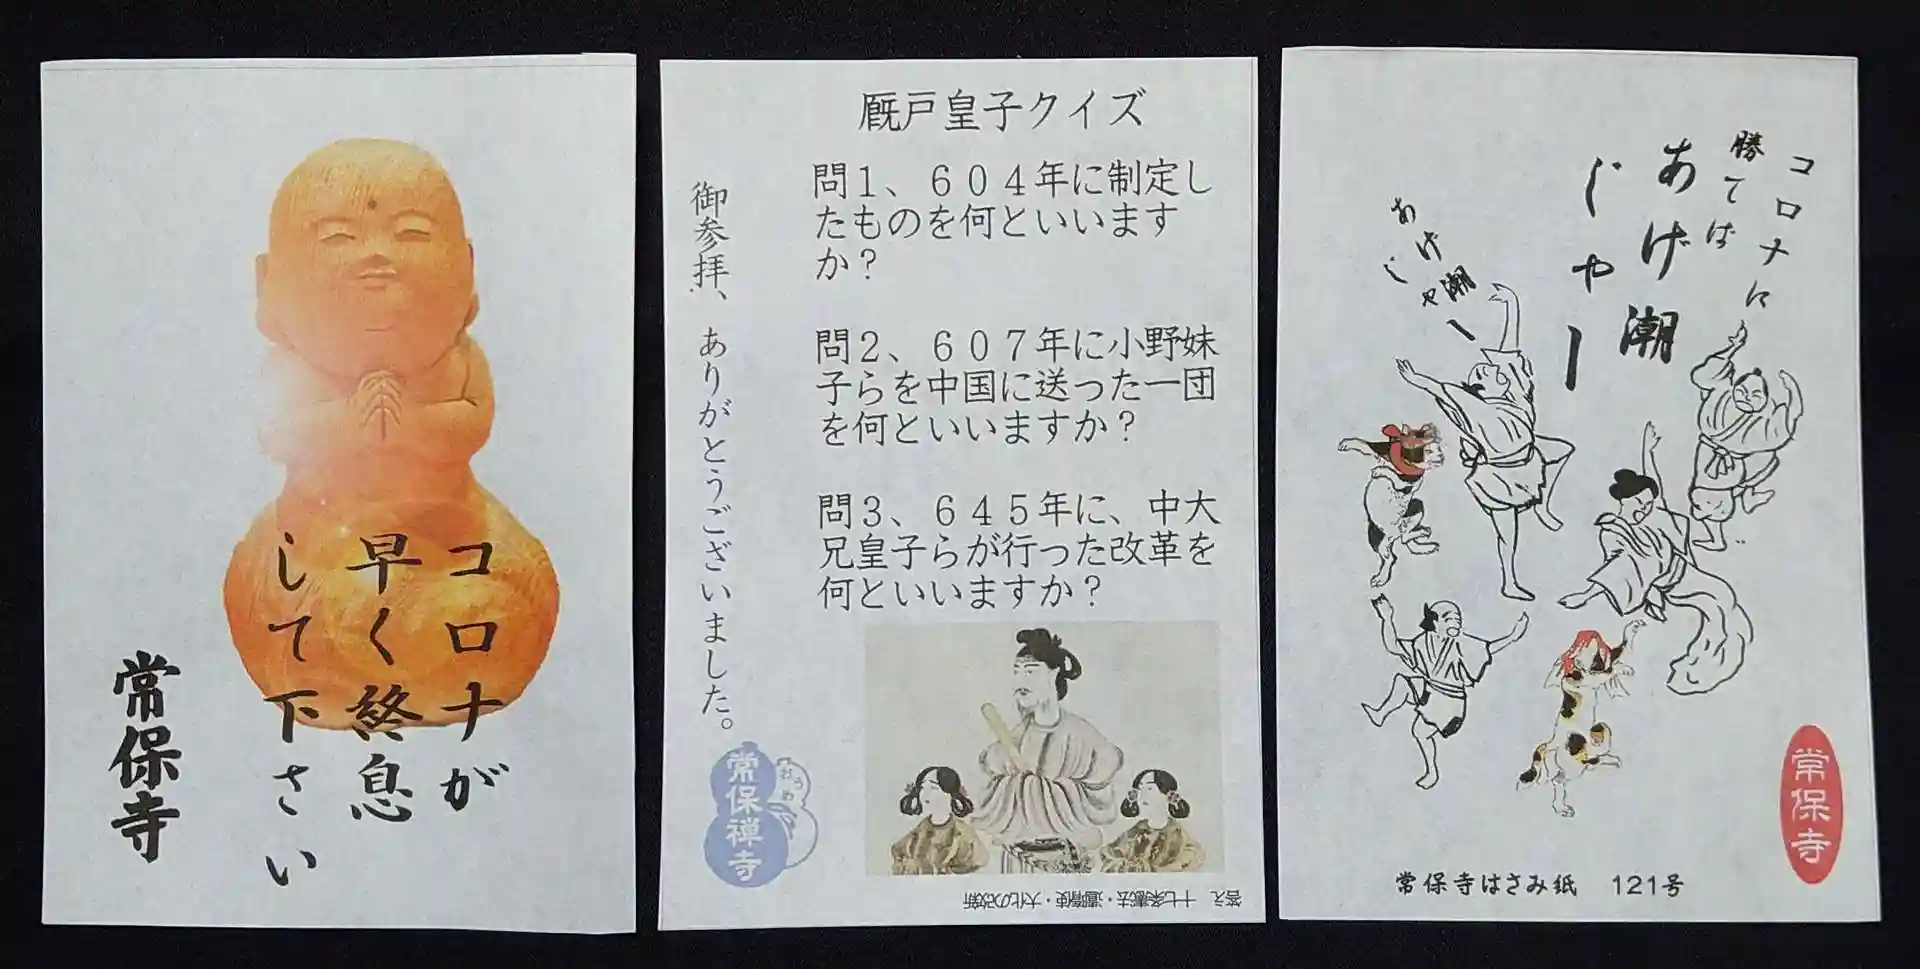 コロナが
早く終息
して下さい
常保寺
厩戸皇子クイズ
問1、604年に制定し
たものを何といいます
か?
問2、607年に小野妹
子らを中国に送った一団
を何といいますか?
問3、645年に、中大
兄皇子らが行った改革を
何といいますか?
御参拝、ありがとうございました。
常保禅寺
おうめ
答え 十七条憲法・遣隋使・大化の改新
コロナに
勝てば
あげ潮
じゃー
あげ潮
じゃー
常保寺
常保寺はさみ紙 121号